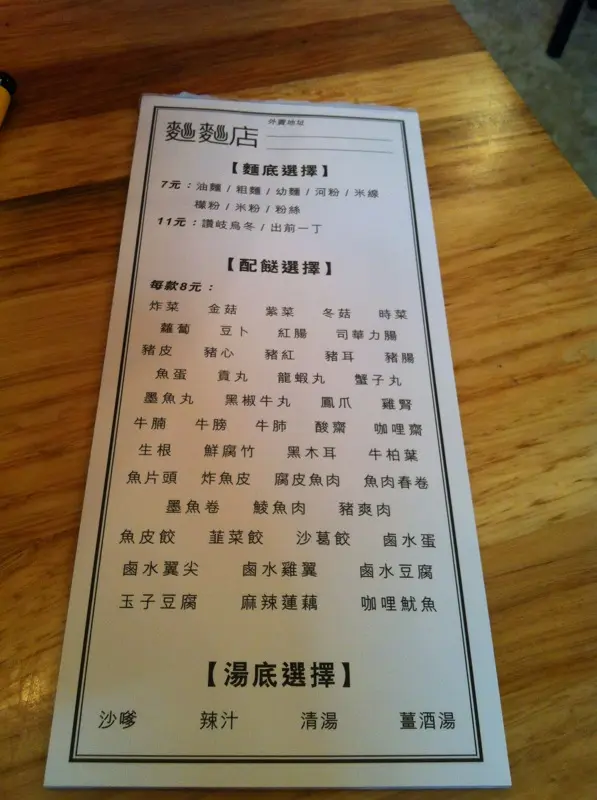 外賣地址
麵麵店
【麵底選擇】
7元：油麵 / 粗麵 / 幼麵 / 河粉 / 米線
檬粉 / 米粉 / 粉絲
11元：讚岐烏冬 / 出前一丁
【配餸選擇】
每款8元：
炸菜 金菇 紫菜 冬菇 時菜
蘿蔔 豆卜 紅腸 司華力腸
豬皮 豬心 豬紅 豬耳 豬腸
魚蛋 貢丸 龍蝦丸 蟹子丸
墨魚丸 黑椒牛丸 鳳爪 雞腎
牛腩 牛膀 牛肺 酸齋 咖喱齋
生根 鮮腐竹 黑木耳 牛柏葉
魚片頭 炸魚皮 腐皮魚肉 魚肉春卷
墨魚卷 鯪魚肉 豬爽肉
魚皮餃 韮菜餃 沙葛餃 鹵水蛋
鹵水翼尖 鹵水雞翼 鹵水豆腐
玉子豆腐 麻辣蓮藕 咖喱魷魚
【湯底選擇】
沙嗲 辣汁 清湯 薑酒湯